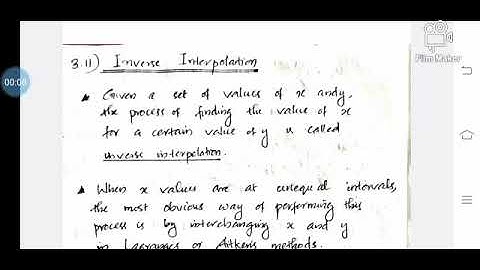 00:08
Film Maker
3.11) Inverse Interpolation
Given a set of values of x and y,
the process of finding the value of x
for a certain value of y is called
inverse interpolation.
When x values are at unequal intervals,
the most obvious way of performing this
process is by interchanging x and y
in Lagranges or Aitkens methods.